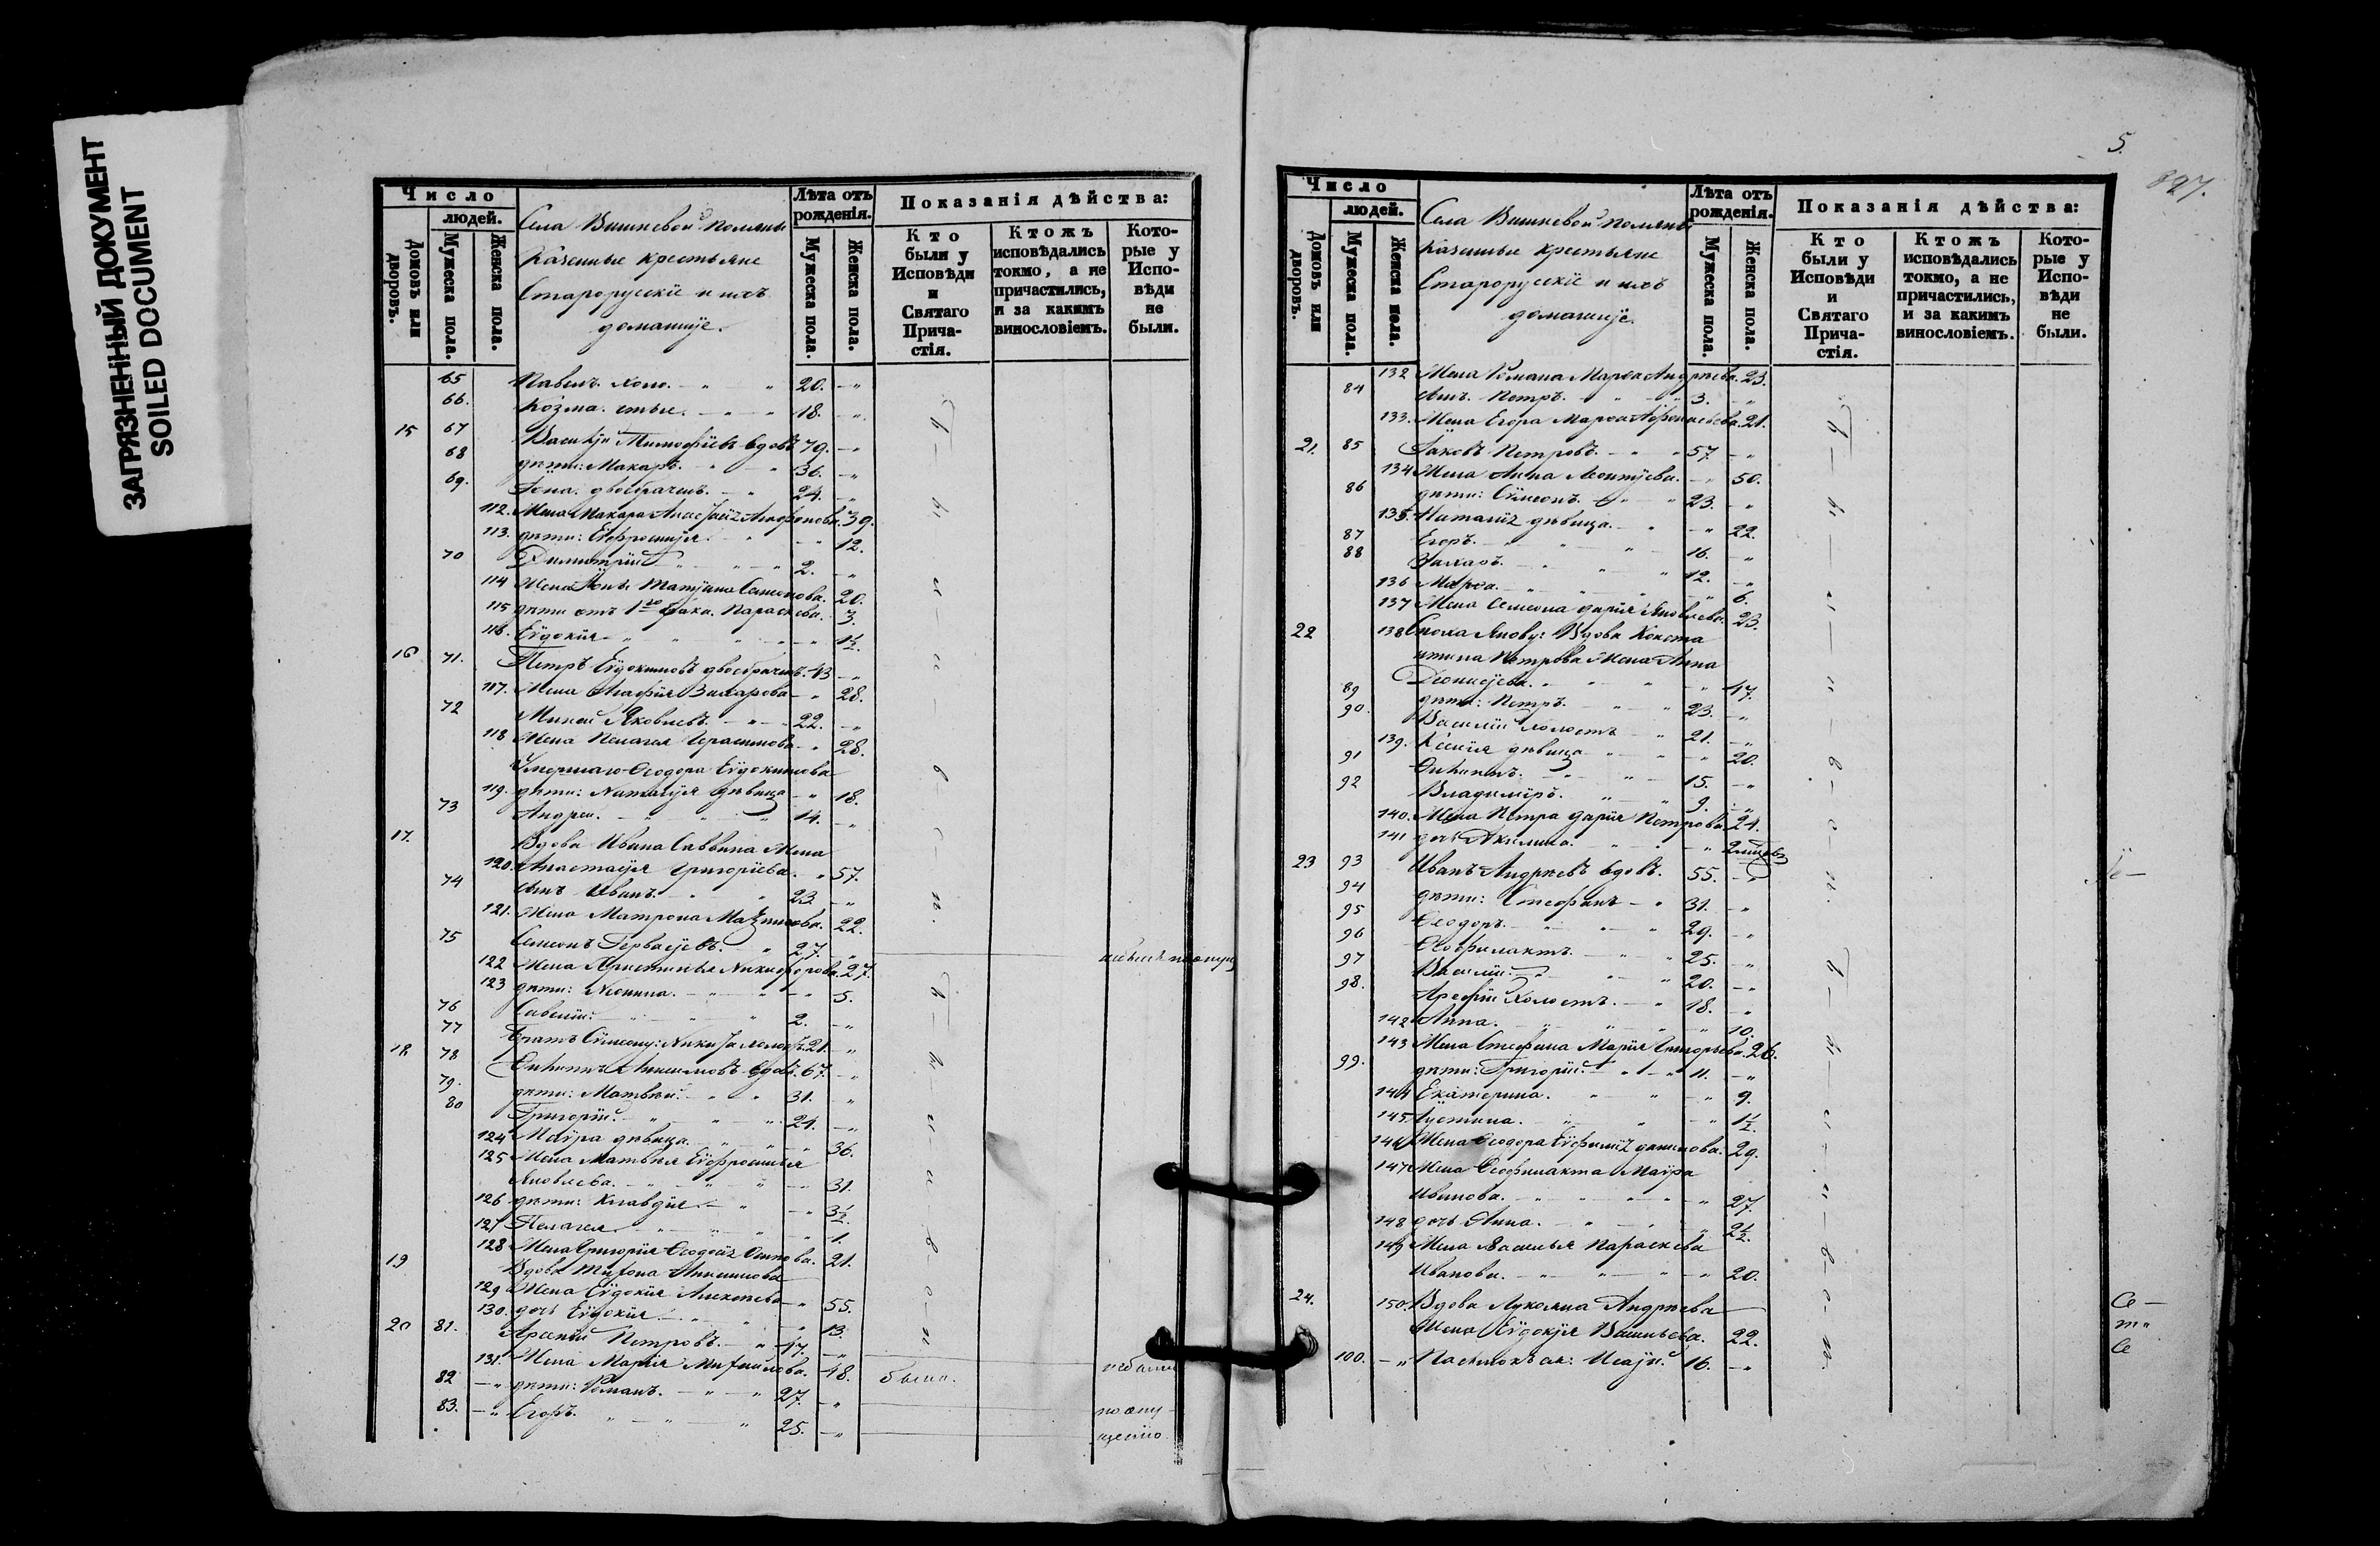 ЗАГРЯЗНЕННЫЙ ДОКУМЕНТ
SOILED DOCUMENT
Число
людей.
Домовъ или дворовъ.
Мужеска пола.
Женска пола.
Села Вишневой Поляны
Казенные крестьяне
Старорусскіе и ихъ
домашніе.
Лѣта отъ рожденія.
Мужеска пола.
Женска пола.
Показанія дѣйства:
Кто были у Исповѣди и Святаго Причастія.
Ктожъ исповѣдались токмо, а не причастились, и за какимъ винословіемъ.
Которые у Исповѣди не были.
65 Павелъ холо. 20.
66. Козма. 18.
15 67 Василій Тимофѣевъ вдовъ 79.
68 дѣти: Макаръ. 36.
69. Іона. двоебраченъ. 24.
112. Жена Макара 39.
113. дѣти: Евфросинія 12.
70 Димитрій 2.
114 Жена Іоны Татіана Семенова. 20.
115 дѣти отъ 1го брака. Параскева. 3.
116. Евдокія 1½.
16 71. Петръ Евдокимовъ двоебраченъ. 43
117. Жена Агафія Захарова 28.
72 Минай Яковлевъ. 22.
118 Жена Пелагея Герасимова 28.
Умершаго Ѳеодора Евдокимова
119. дѣти: Наталія дѣвица 18.
73 Андрей. 14.
17. Вдова Ивана Саввина Жена
120. Анастасія Григоріева. 57.
74 сынъ Иванъ. 23
121. Жена Матрона 22.
75 Семенъ Гервасіевъ. 27.
122 Жена Никифорова. 27.
123 дѣти: Неонила. 5.
76 Савелій: 2.
77 Братъ Сѵмеону: 21.
18 78 вдовъ. 67.
79. дѣти: Матвѣй. 31.
80 Григорій. 24.
124 Мавра дѣвица. 36.
125 Жена Матвѣя Евфросинія
Яковлева. 31.
126 дѣти: Клавдія 3½.
127 Пелагея 1.
128 Жена Григорія Ѳеодосія 21.
19 Вдова
129 Жена Евдокія Алексѣева 55.
130. дочь Евдокія 13.
20 81. Арсеній Петровъ. 47.
131. Жена Марія Михайлова. 48. были.
82 дѣти: Романъ. 27.
83. Егоръ. 25.
5.
897.
Число
людей.
Домовъ или дворовъ.
Мужеска пола.
Женска пола.
Села Вишневой Поляны
Казенные крестьяне
Старорусскіе и ихъ
домашніе.
Лѣта отъ рожденія.
Мужеска пола.
Женска пола.
Показанія дѣйства:
Кто были у Исповѣди и Святаго Причастія.
Ктожъ исповѣдались токмо, а не причастились, и за какимъ винословіемъ.
Которые у Исповѣди не были.
132 Жена Романа Марѳа Андрѣева. 23.
84 сынъ Петръ. 3.
133. Жена Егора Марѳа Афанасьева. 21.
21. 85 Іаковъ Петровъ. 57.
134 Жена Анна Леонтіева. 50.
86 дѣти: Сѵмеонъ. 23.
135. Наталія дѣвица. 22.
87 Егоръ. 16.
88 Захаръ. 12.
136 Марѳа. 6.
137 Жена Семена Дарія Яковлева. 23.
22 138 Вдова Конста
нтина Петрова Жена Анна
Діонисіева. 47.
89 дѣти: Петръ. 23.
90. Василій холостъ 21.
139. Ксенія дѣвица 20.
91 15.
92 Владиміръ. 9.
140. Жена Петра Дарія Петрова. 24.
141 дочь Акилина.
23 93 Иванъ Андрѣевъ вдовъ. 55.
94 дѣти: Стефанъ 31.
95 Ѳеодоръ. 29.
96 Ѳеофилактъ. 25.
97 Василій. 20.
98. Арефій холостъ. 18.
142 Анна. 10.
143 Жена Стефана Марія Григорьева. 26.
99. дѣти: Григорій. 11.
144 Екатерина. 9.
145 Іустина. 1½.
146 Жена Ѳеодора Евфимія Данилова. 29.
147 Жена Ѳеофилакта Мавра
Иванова. 27.
148 дочь Анна. 2½.
149 Жена Василья Параскева
Иванова. 20.
24. 150. Вдова Лукояна Андрѣева
Жена Евдокія Васильева. 22.
100. Исаія. 16.